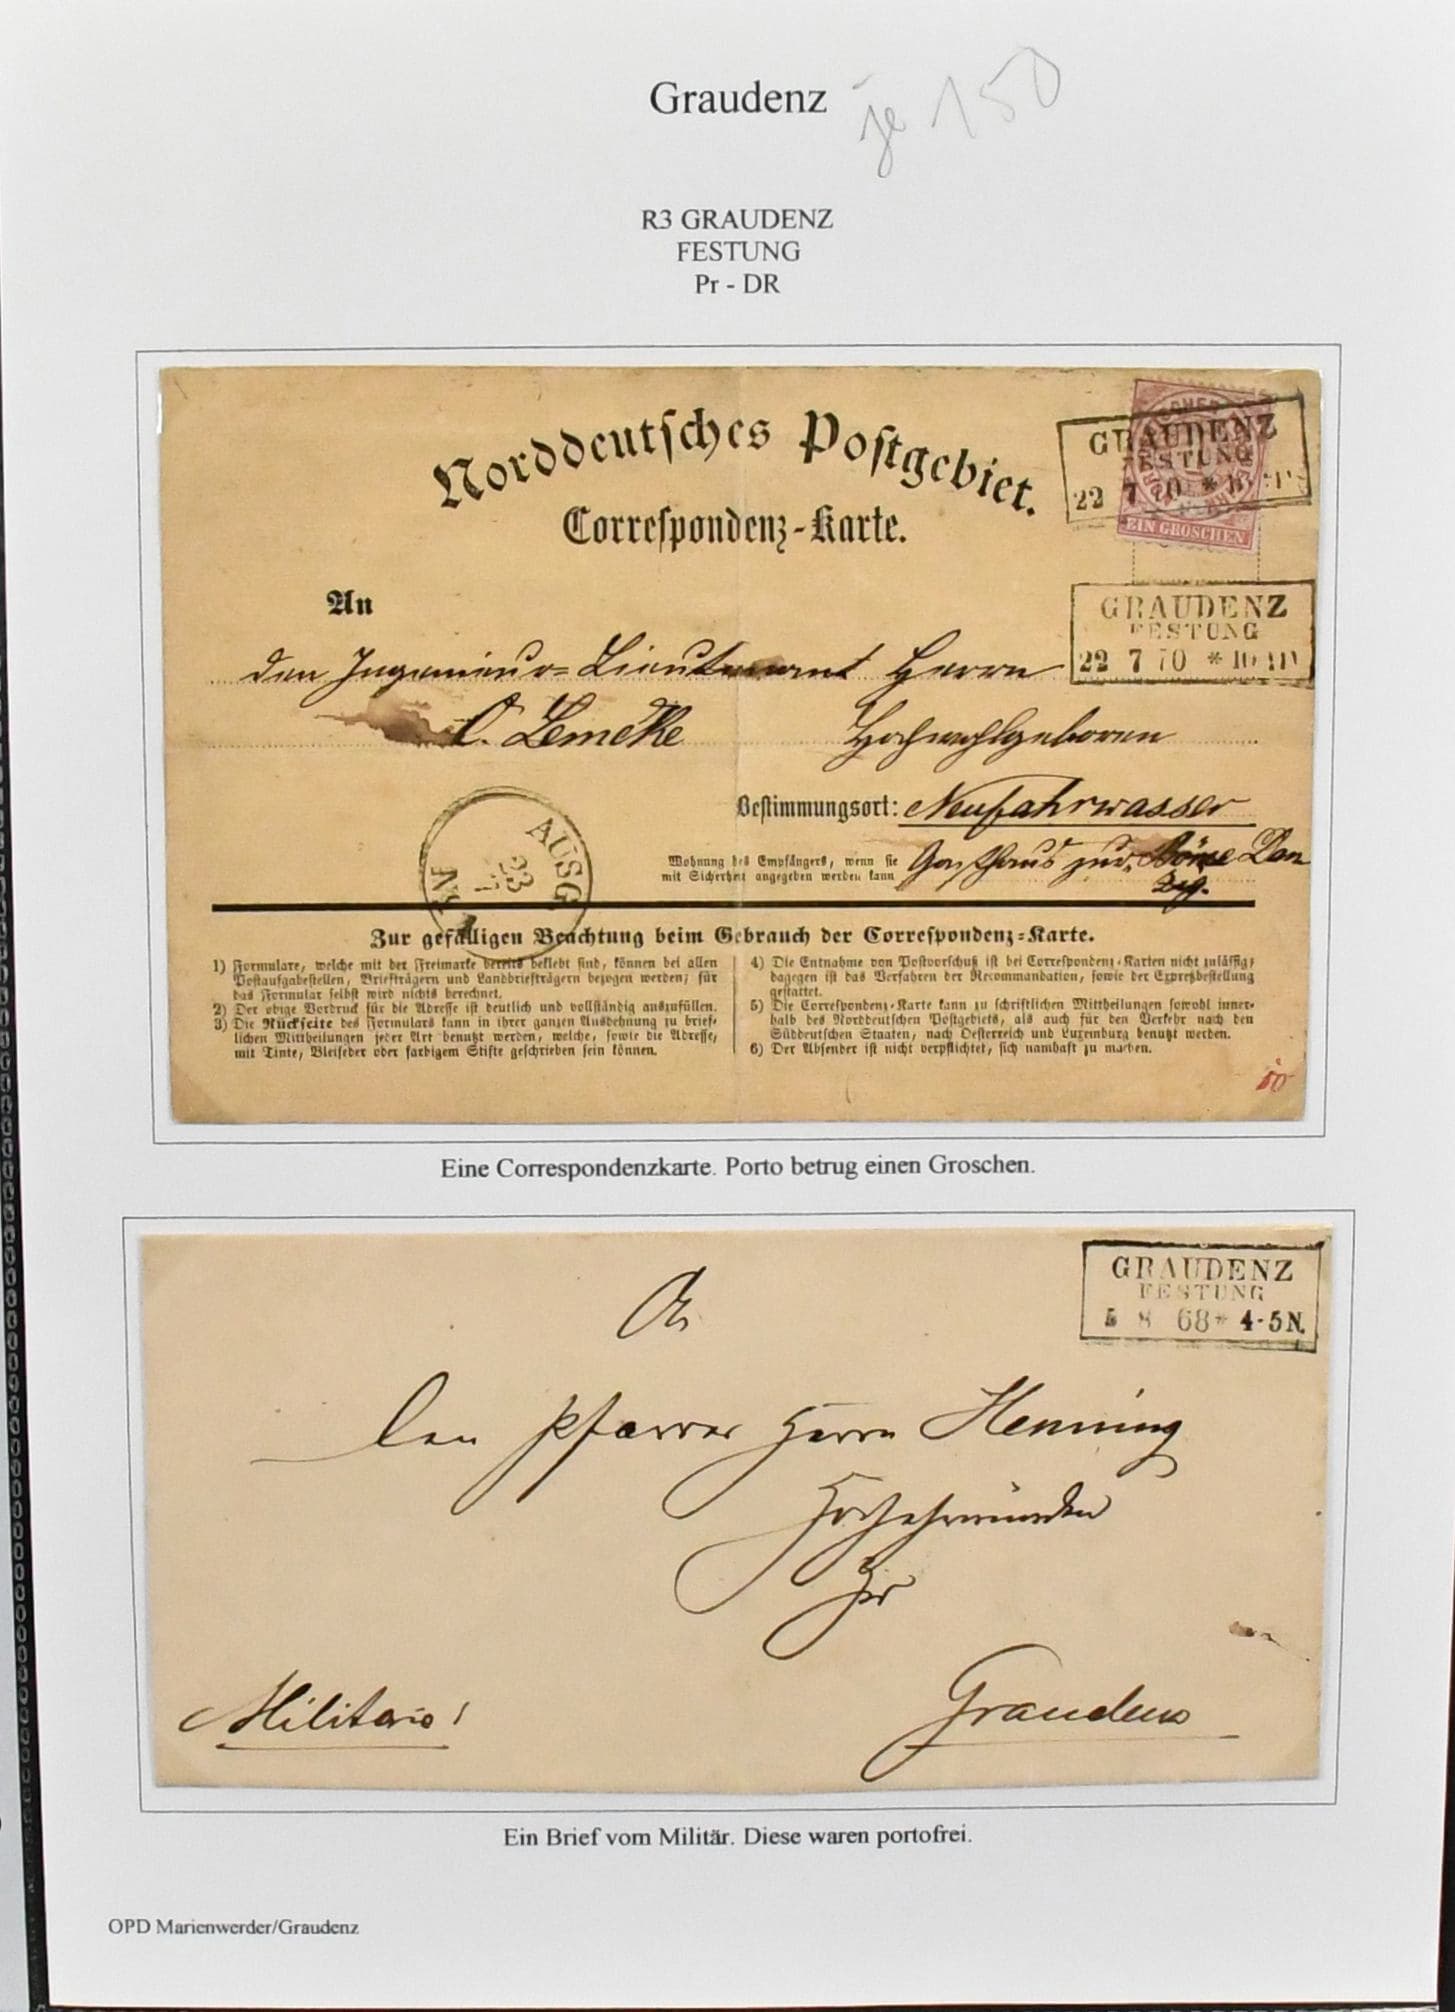 Graudenz
je 150
R3 GRAUDENZ
FESTUNG
Pr - DR
Norddeutsches Postgebiet.
Correspondenz-Karte.
GRAUDENZ
FESTUNG
22 7 70 *
EIN GROSCHEN
An
GRAUDENZ
FESTUNG
22 7 70 *
den Ingenieur-Lieutenant Herrn
C. Lemcke Hochwohlgeboren
Bestimmungsort: Neufahrwasser
Wohnung des Empfängers, wenn sie
mit Sicherheit angegeben werden kann
Gasthaus zur Börse Dan
zig.
AUSG
23
7
N
Zur gefälligen Beachtung beim Gebrauch der Correspondenz-Karte.
1) Formulare, welche mit der Freimarke bereits beklebt sind, können bei allen
Postaufgabestellen, Briefträgern und Landbriefträgern bezogen werden; für
das Formular selbst wird nichts berechnet.
2) Der obige Vordruck für die Adresse ist deutlich und vollständig auszufüllen.
3) Die Rückseite des Formulars kann in ihrer ganzen Ausdehnung zu brief-
lichen Mittheilungen jeder Art benutzt werden, welche, sowie die Adresse,
mit Tinte, Bleifeder oder farbigem Stifte geschrieben sein können.
4) Die Entnahme von Postvorschuß ist bei Correspondenz-Karten nicht zulässig;
dagegen ist das Verfahren der Recommandation, sowie der Expreßbestellung
gestattet.
5) Die Correspondenz-Karte kann zu schriftlichen Mittheilungen sowohl inner-
halb des Norddeutschen Postgebiets, als auch für den Verkehr nach den
Süddeutschen Staaten, nach Oesterreich und Luxemburg benutzt werden.
6) Der Absender ist nicht verpflichtet, sich namhaft zu machen.
Eine Correspondenzkarte. Porto betrug einen Groschen.
GRAUDENZ
FESTUNG
5 8 68 * 4-5 N.
An
Den Pfarrer Herrn Henning
Hochehrwürden
hier
Graudenz
Militaria!
Ein Brief vom Militär. Diese waren portofrei.
OPD Marienwerder/Graudenz